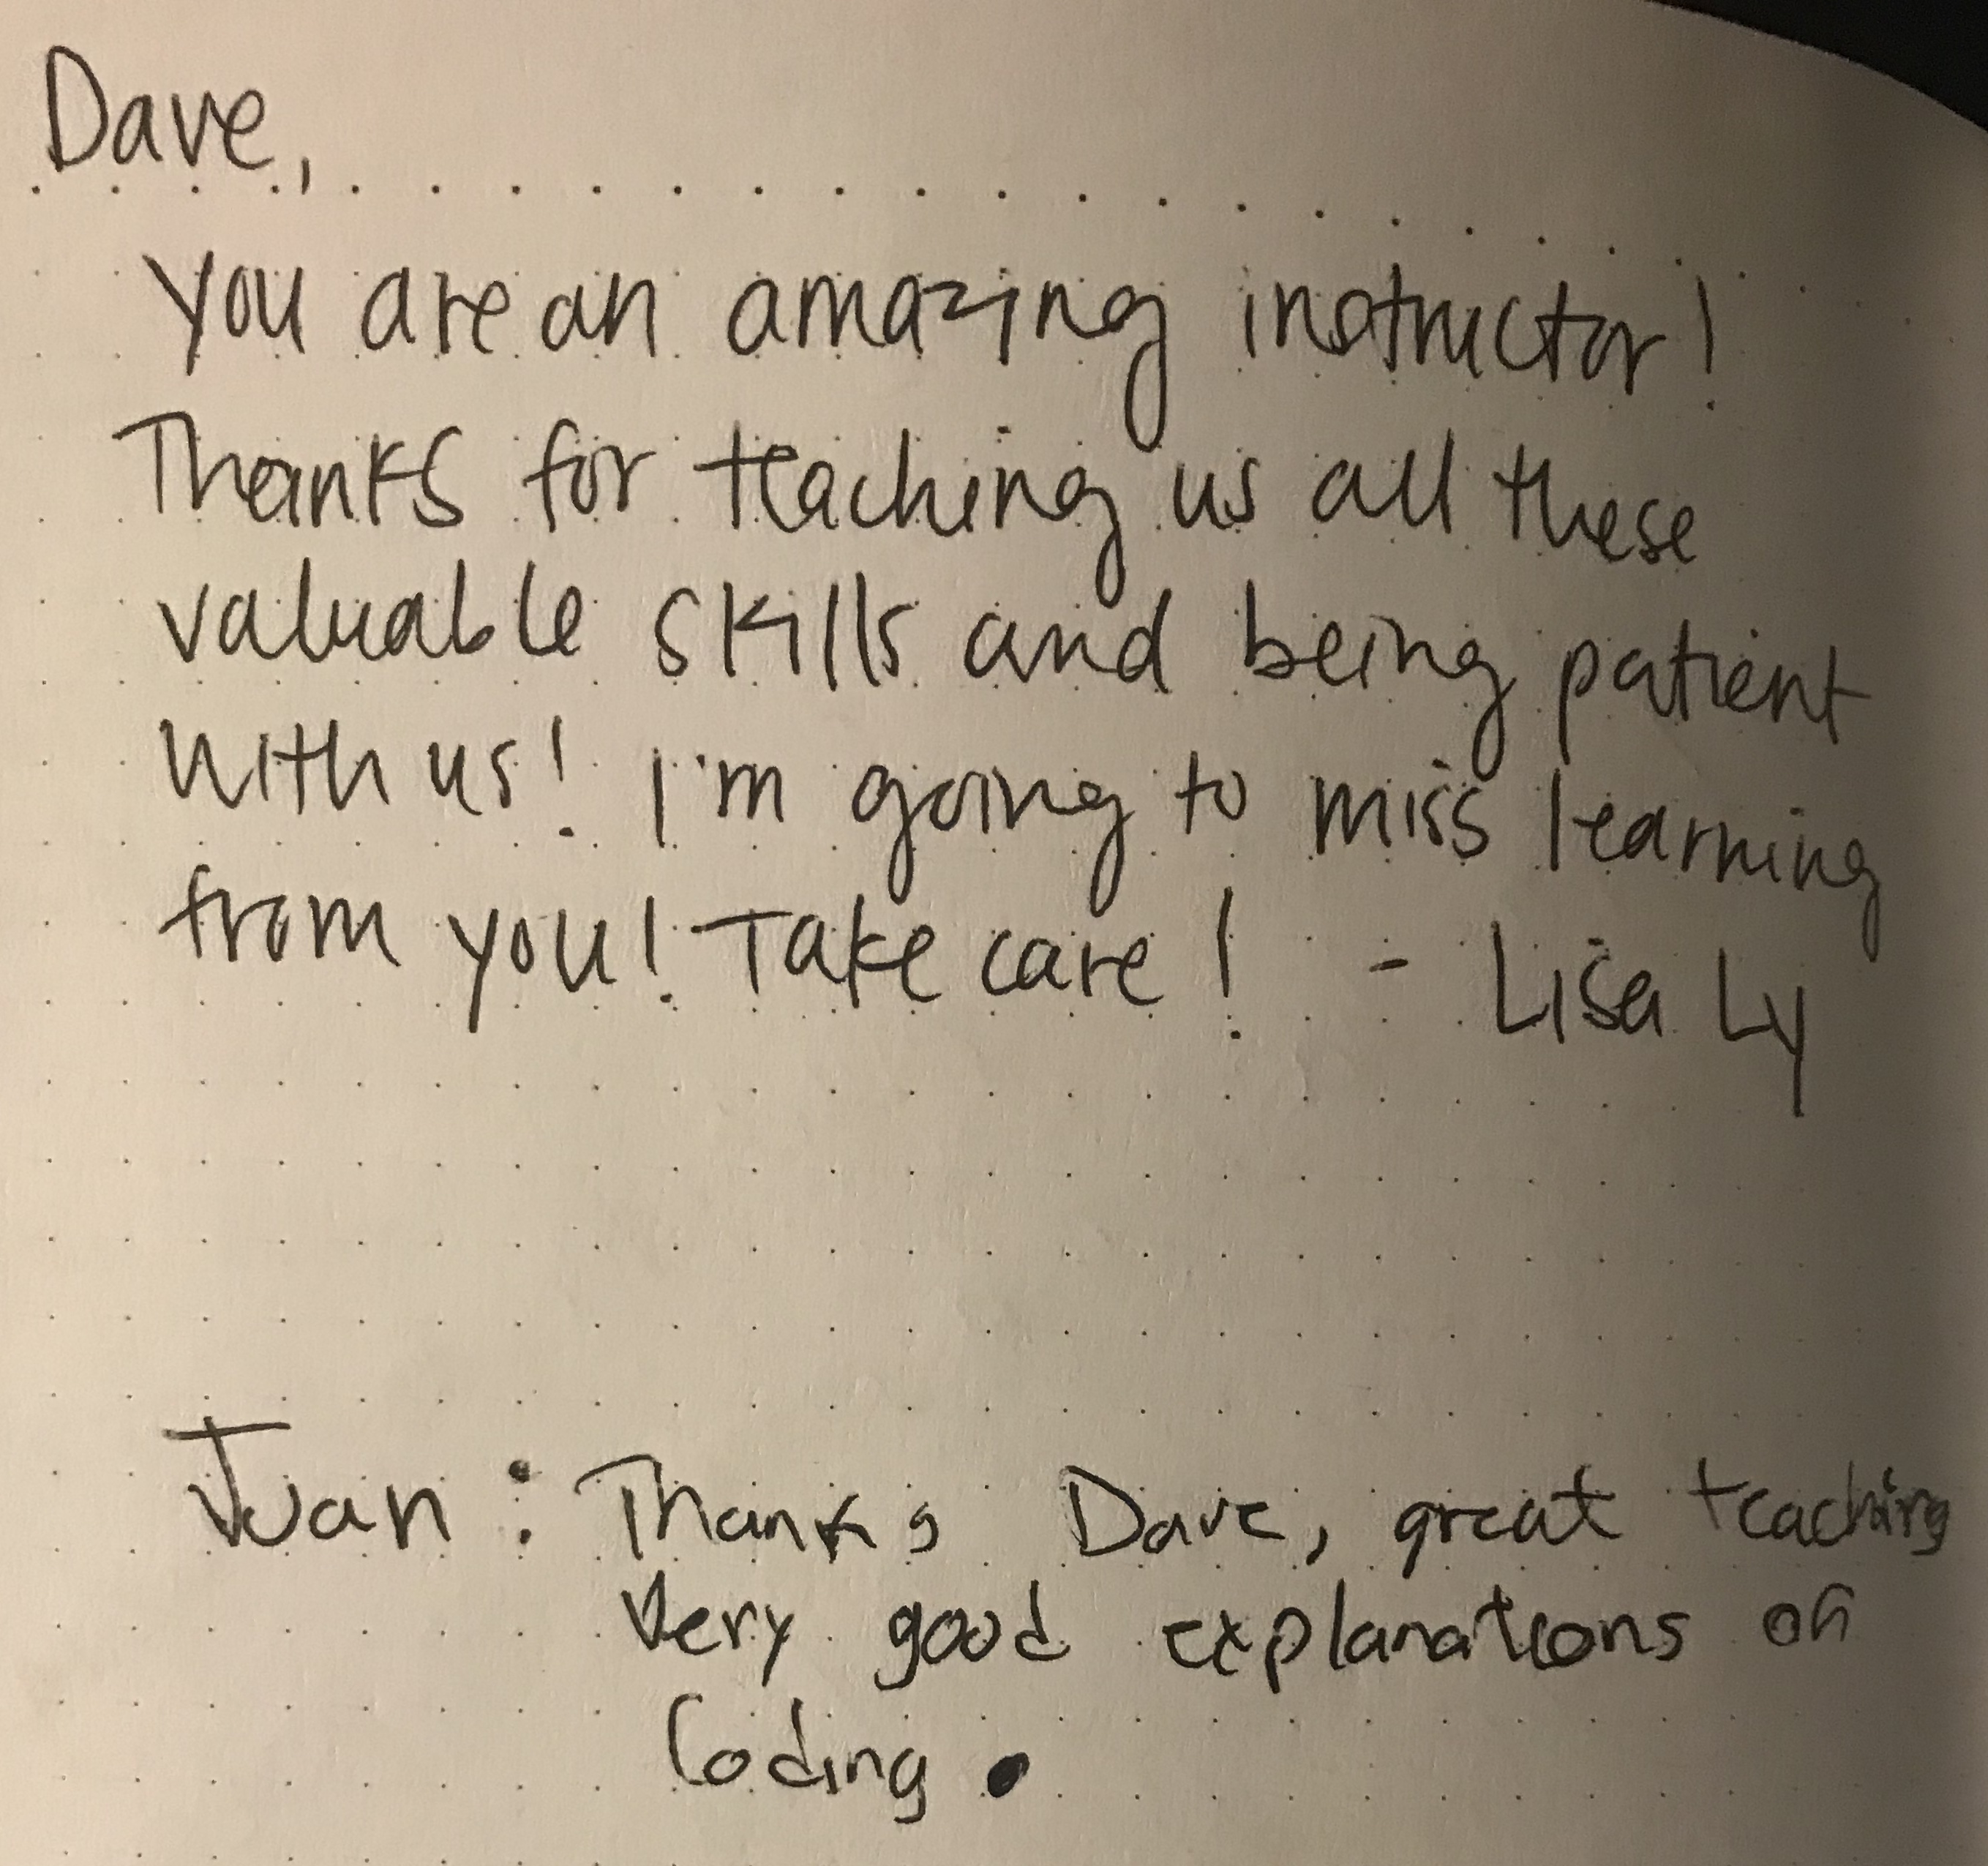 Dave,
You are an amazing instructor!
Thanks for teaching us all these
valuable skills and being patient
with us! I'm going to miss learning
from you! Take care! - Lisa Ly
Juan: Thanks Dave, great teaching
Very good explanations on
Coding.